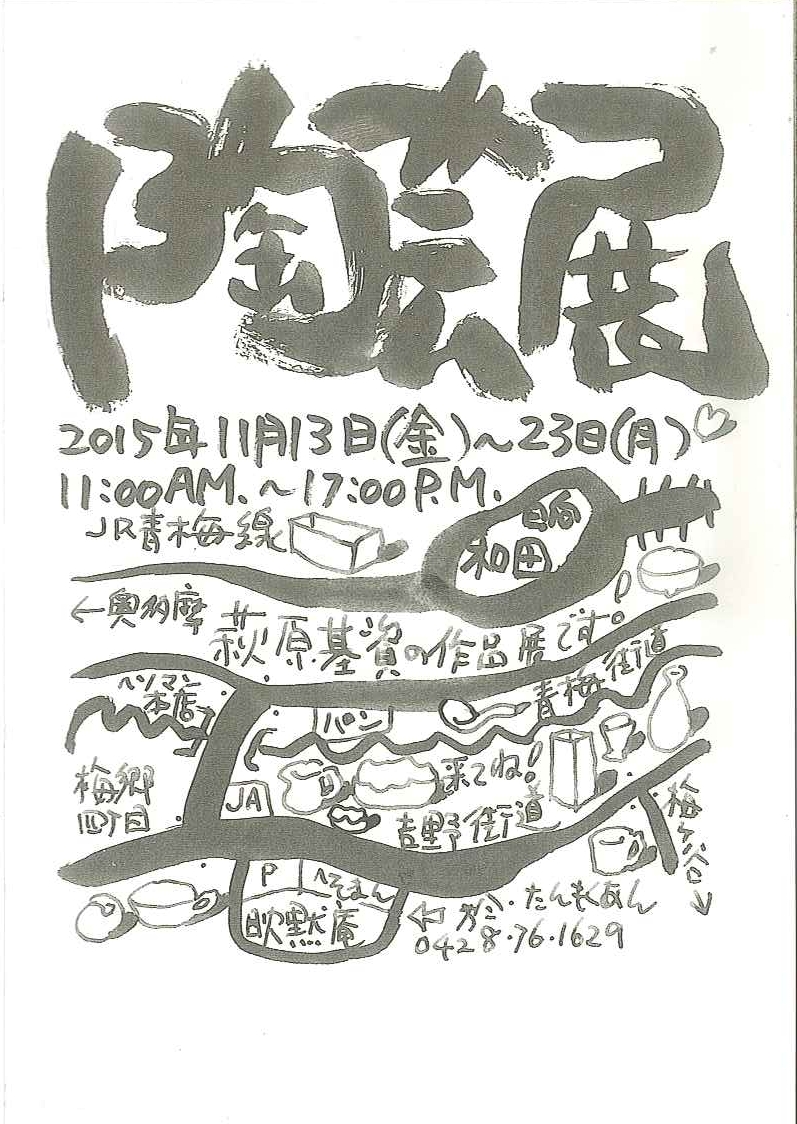 陶芸展
2015年11月13日(金)～23日(月)
11:00AM.～17:00P.M.
JR青梅線
日向
和田
←奥多摩
萩原基資の作品展です。
青梅街道
ヘソマン
本店
パン
来てね!
梅郷
四丁目
JA
吉野街道
P
へそまん
⇦
たんもくあん
0428・76・1629